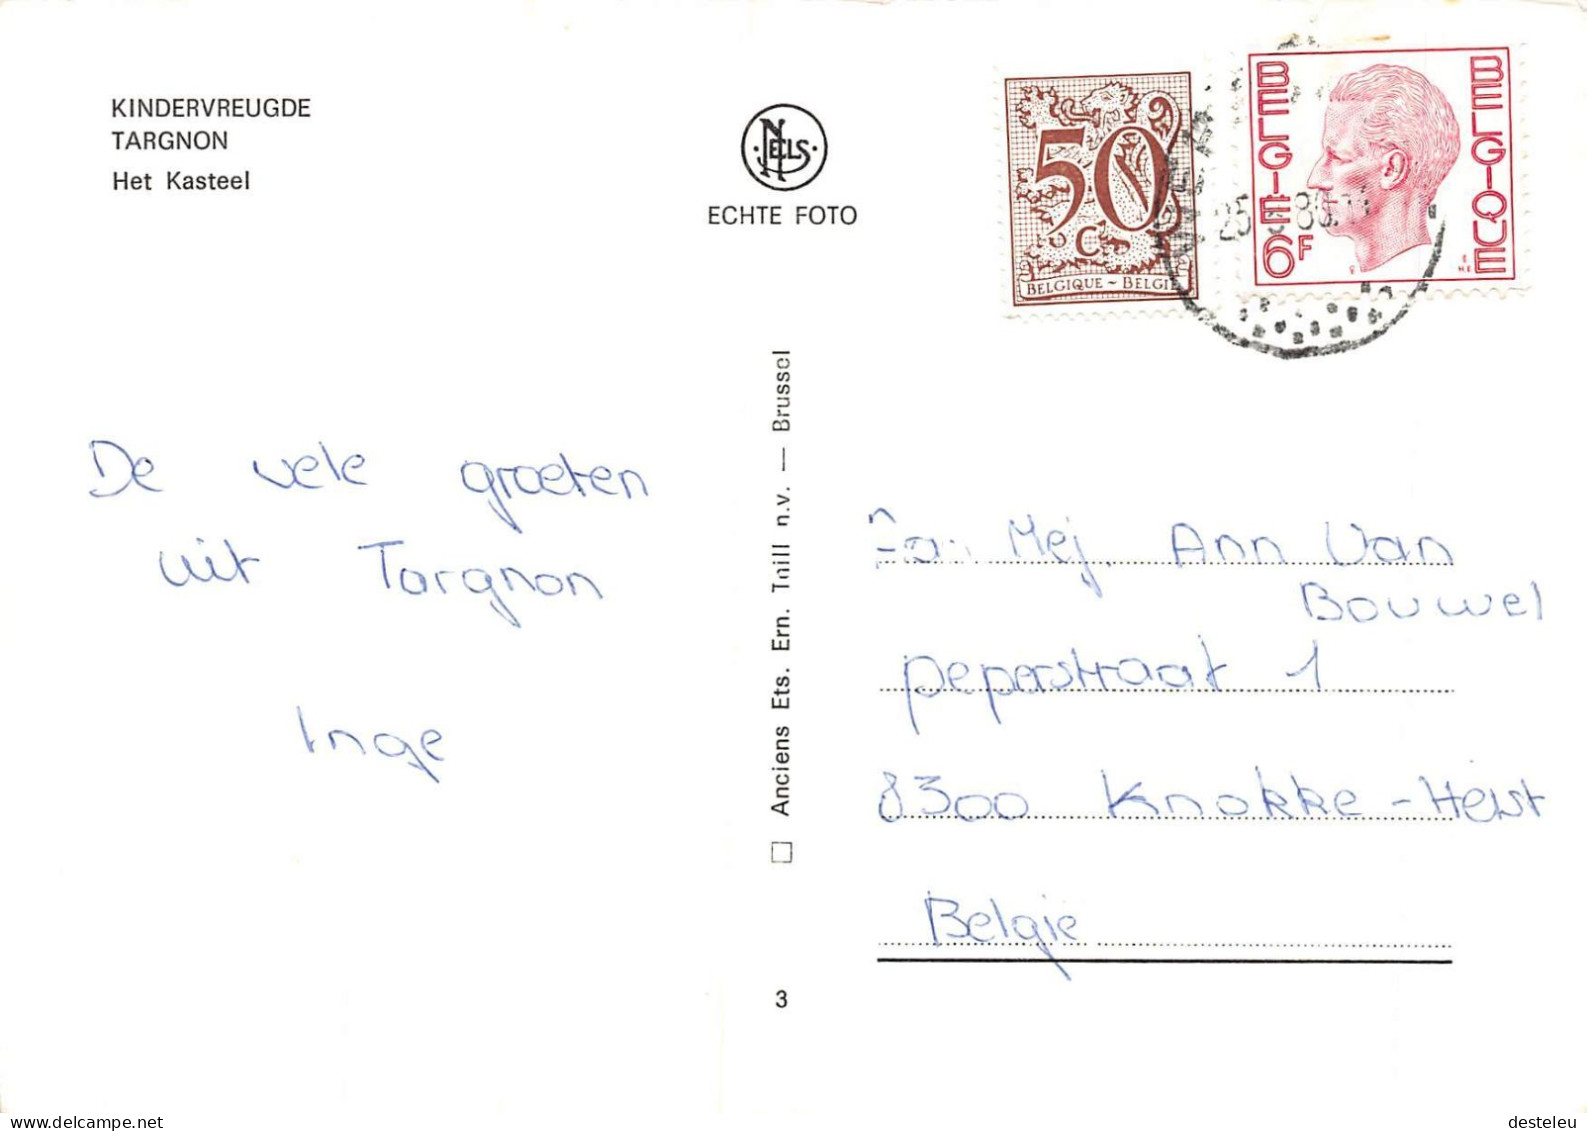 KINDERVREUGDE
TARGNON
Het Kasteel
NELS
ECHTE FOTO
50
C
BELGIQUE ~ BELGIË
BELGIE
BELGIQUE
6F
25
80
De vele groeten
uit Targnon
Inge
Anciens Ets. Ern. Thill n.v. — Brussel
3
Aan Mej. Ann Van
Bouwel
peperstraat 1
8300 Knokke-Heist
België
www.delcampe.net
desteleu